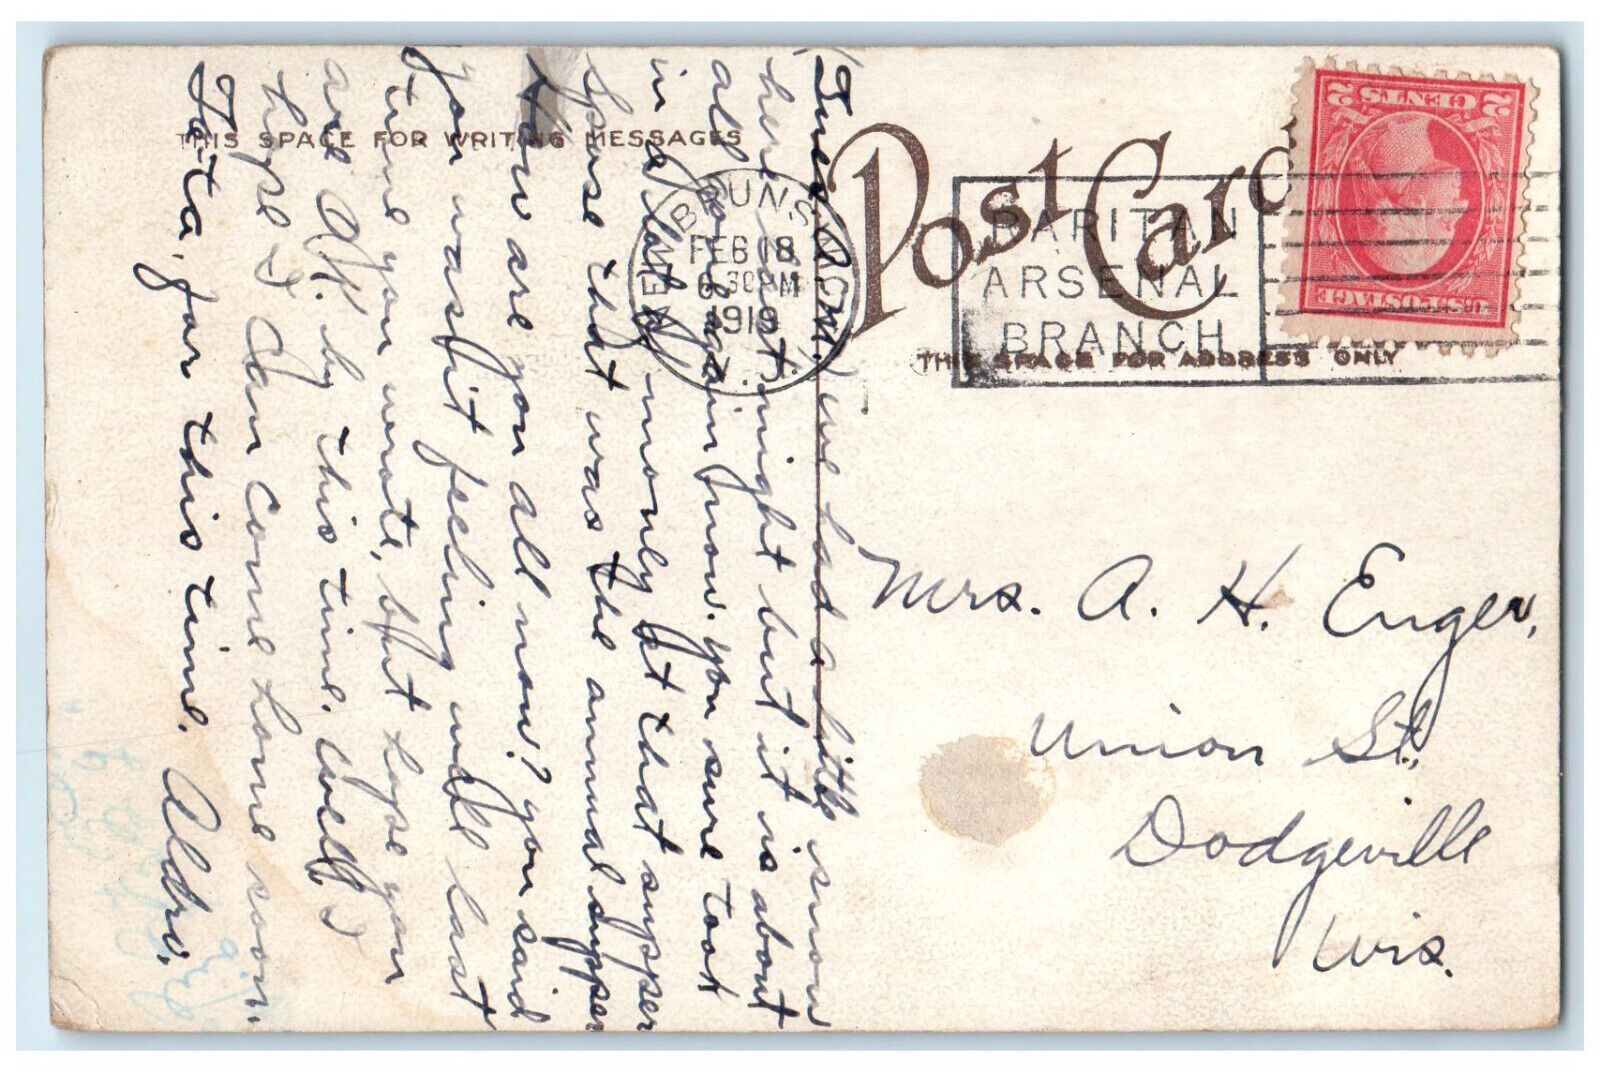 (Tues. P.M.) we had a little snow
here last night but it is about
all gone again now. you sure took
in a lot of money at that supper
spose that was the annual supper
How are you all now? you said
you wasn't feeling well last
time you wrote, but hope you
are O.K. by this time. Well I
hope I can come home soon.
Ta-ta, for this time. Aldro.
THIS SPACE FOR WRITING MESSAGES
Post Card
THIS SPACE FOR ADDRESS ONLY
NEW BRUNS
FEB 18
6 30 PM
1919
N.J.
RARITAN
ARSENAL
BRANCH
U.S. POSTAGE
2 CENTS 2
Mrs. A. H. Enger,
Union St.,
Dodgeville
Wis.